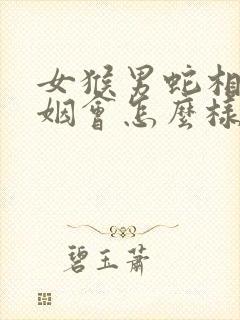 女猴男蛇相
姻會怎麼樣
碧玉蕭